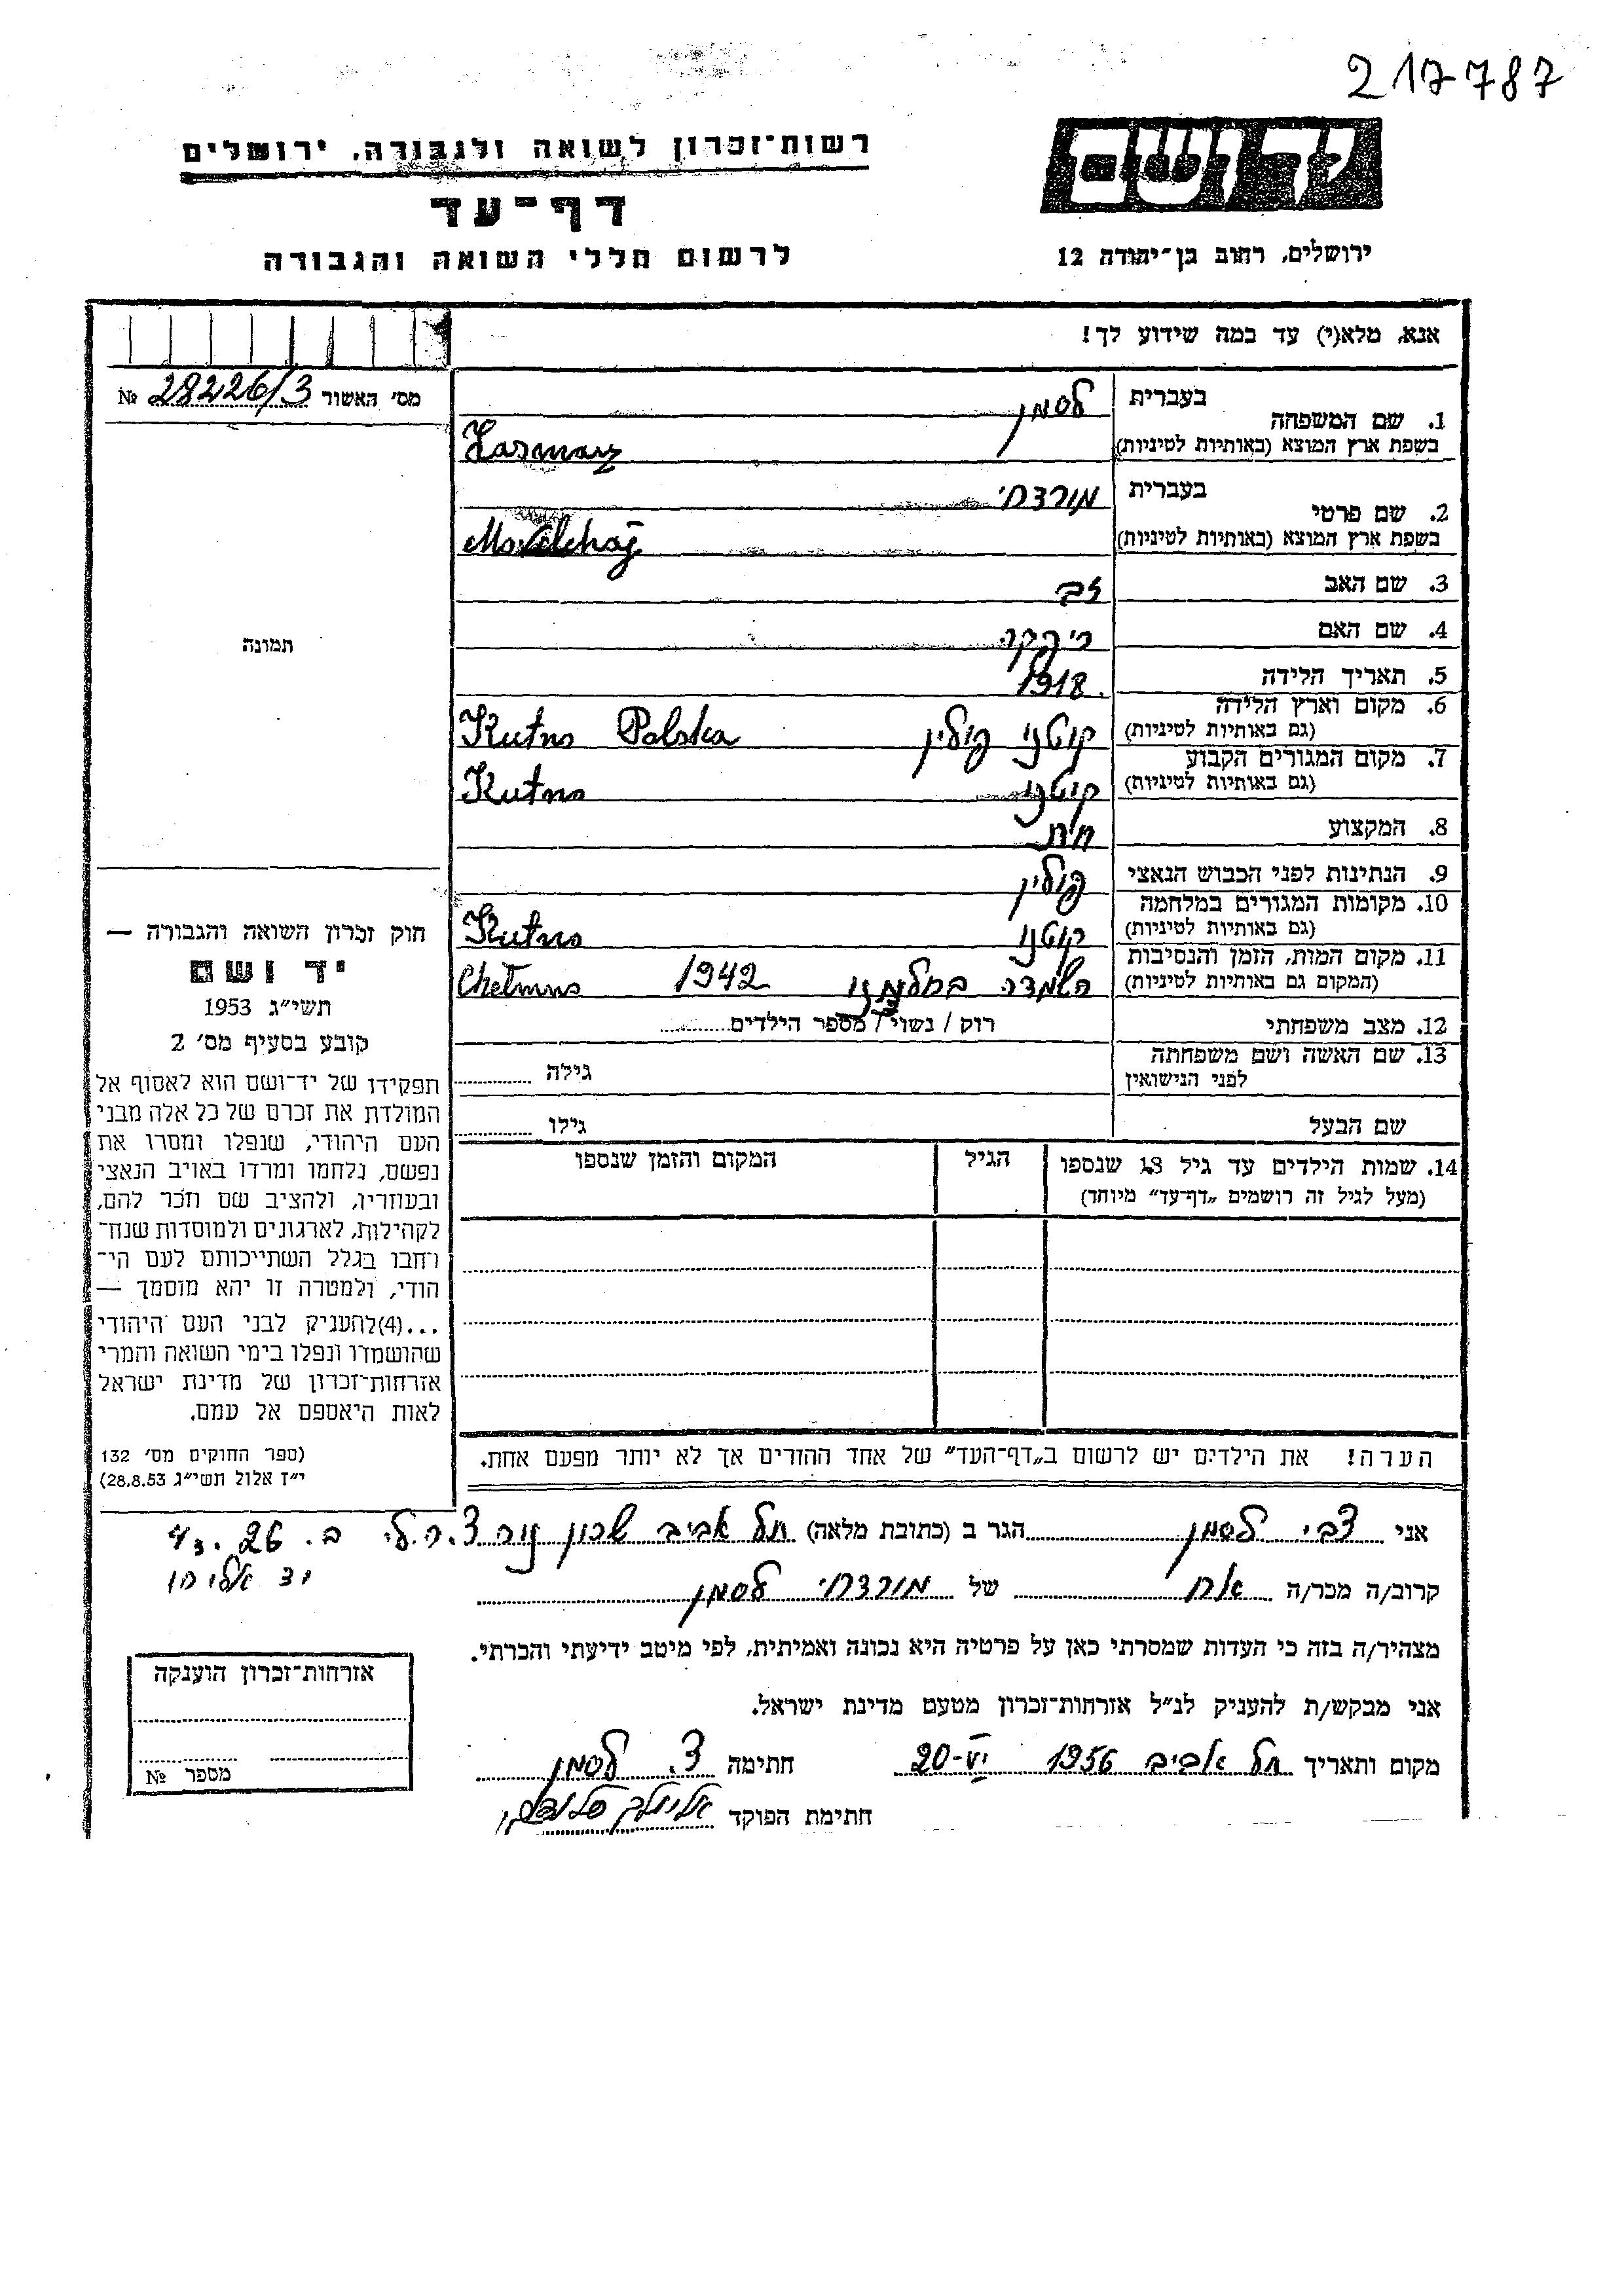 217787
יד ושם
רשות־זכרון לשואה ולגבורה, ירושלים
דף־עד
לרשום חללי השואה והגבורה
ירושלים, רחוב בן־יהודה 12
אנא, מלא(י) עד כמה שידוע לך!
מס׳ האשור 28226/3 №
תמונה
1. שם המשפחה בעברית לסמן
בשפת ארץ המוצא (באותיות לטיניות) Lasman
2. שם פרטי בעברית מורדחי
בשפת ארץ המוצא (באותיות לטיניות) Mordchaj
3. שם האב זב
4. שם האם ריבקה
5. תאריך הלידה 1918
6. מקום וארץ הלידה קוטנו פולין Kutno Polska
(גם באותיות לטיניות)
7. מקום המגורים הקבוע קוטנו Kutno
(גם באותיות לטיניות)
8. המקצוע חיט
9. הנתינות לפני הכבוש הנאצי פולין
10. מקומות המגורים במלחמה קוטנו Kutno
(גם באותיות לטיניות)
11. מקום המות, הזמן והנסיבות השמדה בחלמנו 1942 Chełmno
(המקום גם באותיות לטיניות)
12. מצב משפחתי רוק / נשוי / מספר הילדים
13. שם האשה ושם משפחתה גילה
לפני הנישואין
שם הבעל גילו
14. שמות הילדים עד גיל 18 שנספו הגיל המקום והזמן שנספו
(מעל לגיל זה רושמים „דף־עד״ מיוחד)
הערה! את הילדים יש לרשום ב„דף־העד״ של אחד ההורים אך לא יותר מפעם אחת.
חוק זכרון השואה והגבורה —
יד ושם
תשי״ג 1953
קובע בסעיף מס׳ 2
תפקידו של יד־ושם הוא לאסוף אל
המולדת את זכרם של כל אלה מבני
העם היהודי, שנפלו ומסרו את
נפשם, נלחמו ומרדו באויב הנאצי
ובעוזריו, ולהציב שם וזכר להם,
לקהילות, לארגונים ולמוסדות שנח־
רבו בגלל השתייכותם לעם הי־
הודי, ולמטרה זו יהא מוסמך —
...(4)להעניק לבני העם היהודי
שהושמדו ונפלו בימי השואה והמרי
אזרחות־זכרון של מדינת ישראל
לאות היאספם אל עמם.
(ספר החוקים מס׳ 132
י״ז אלול תשי״ג 28.8.53)
אני צבי לסמן הגר ב (כתובת מלאה) תל אביב שכון ב. 26
יד אליהו
קרוב/ה מכר/ה אח של מורדחי לסמן
מצהיר/ה בזה כי העדות שמסרתי כאן על פרטיה היא נכונה ואמיתית, לפי מיטב ידיעתי והכרתי.
אני מבקש/ת להעניק לנ״ל אזרחות־זכרון מטעם מדינת ישראל.
מקום ותאריך תל אביב 1956 VI-20 חתימה צ. לסמן
חתימת הפוקד
אזרחות־זכרון הוענקה
מספר №